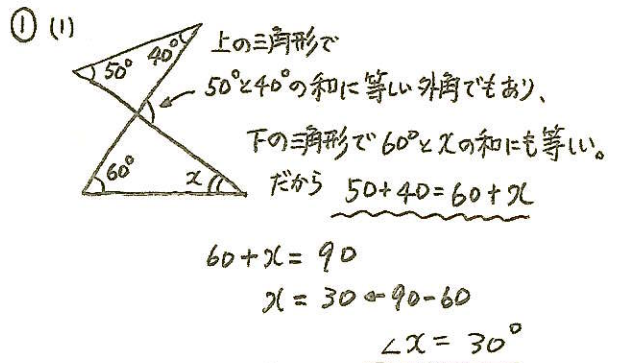 ① (1)
40°
50°
上の三角形で
50°と40°の和に等しい外角でもあり、
下の三角形で60°とxの和にも等しい。
60°
x
だから 50+40=60+x
60+x=90
x=30←90-60
∠x=30°